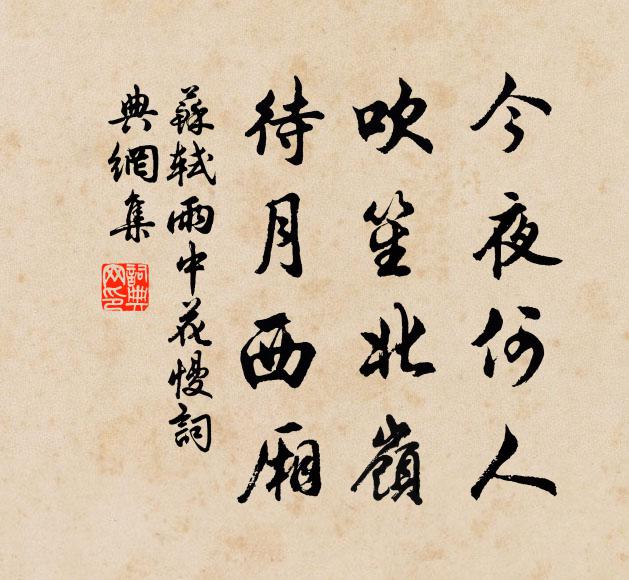 今夜何人
吹笙北嶺
待月西廂
蘇軾雨中花慢詞
典網集
詞典網印